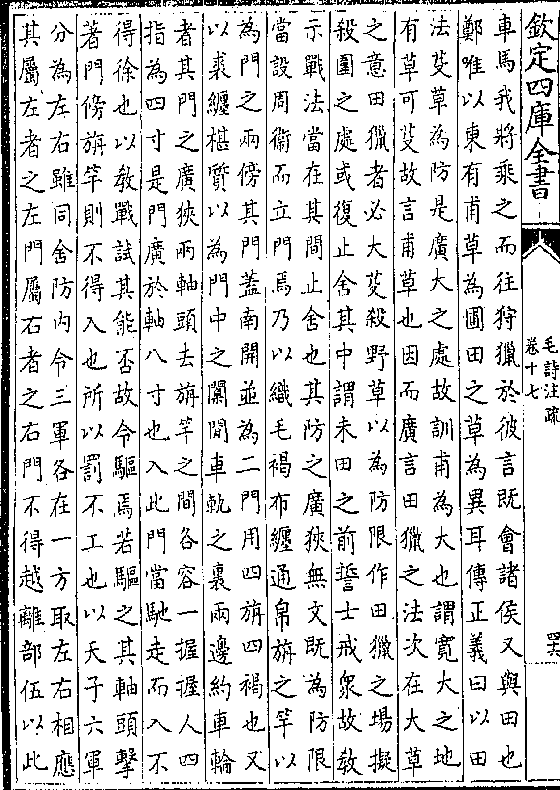 欽定四庫全書
毛詩注疏
卷十七
四六
車馬我將乘之而往狩獵於彼言既會諸侯又與田也
鄭唯以東有甫草為圃田之草為異耳傳正義曰以田
法芟草為防是廣大之處故訓甫為大也謂寬大之地
有草可芟故言甫草也因而廣言田獵之法次在大草
之意田獵者必大芟殺野草以為防限作田獵之場擬
殺圍之處或復止舍其中謂未田之前誓士戒衆故教
示戰法當在其間止舍也其防之廣狹無文既為防限
當設周衛而立門焉乃以織毛褐布纏通帛旃之竿以
為門之兩傍其門葢南開並為二門用四旃四褐也又
以裘纏椹質以為門中之闑闑車軌之裏兩邊約車輪
者其門之廣狹兩軸頭去旃竿之間各容一握握人四
指為四寸是門廣於軸八寸也入此門當馳走而入不
得徐也以教戰試其能否故令驅焉若驅之其軸頭擊
著門傍旃竿則不得入也所以罰不工也以天子六軍
分為左右雖同舍防内令三軍各在一方取左右相應
其屬左者之左門屬右者之右門不得越離部伍以此